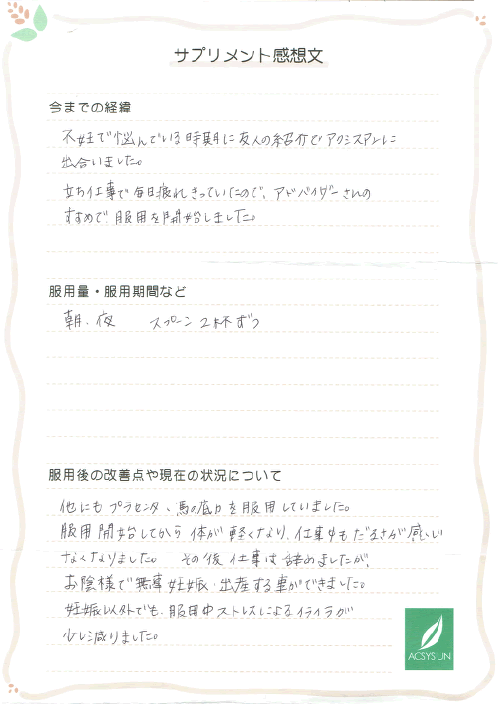 サプリメント感想文
今までの経緯
不妊で悩んでいる時期に友人の紹介でアクシスアンに
出合いました。
立ち仕事で毎日疲れきっていたので、アドバイザーさんの
すすめで服用を開始しました。
服用量・服用期間など
朝、夜 スプーン2杯ずつ
服用後の改善点や現在の状況について
他にもプラセンタ、馬の底力を服用していました。
服用開始してから体が軽くなり、仕事中もだるさが感じ
なくなりました。 その後仕事は辞めましたが、
お陰様で無事妊娠・出産する事ができました。
妊娠以外でも、服用中ストレスによるイライラが
少し減りました。
ACSYSUN